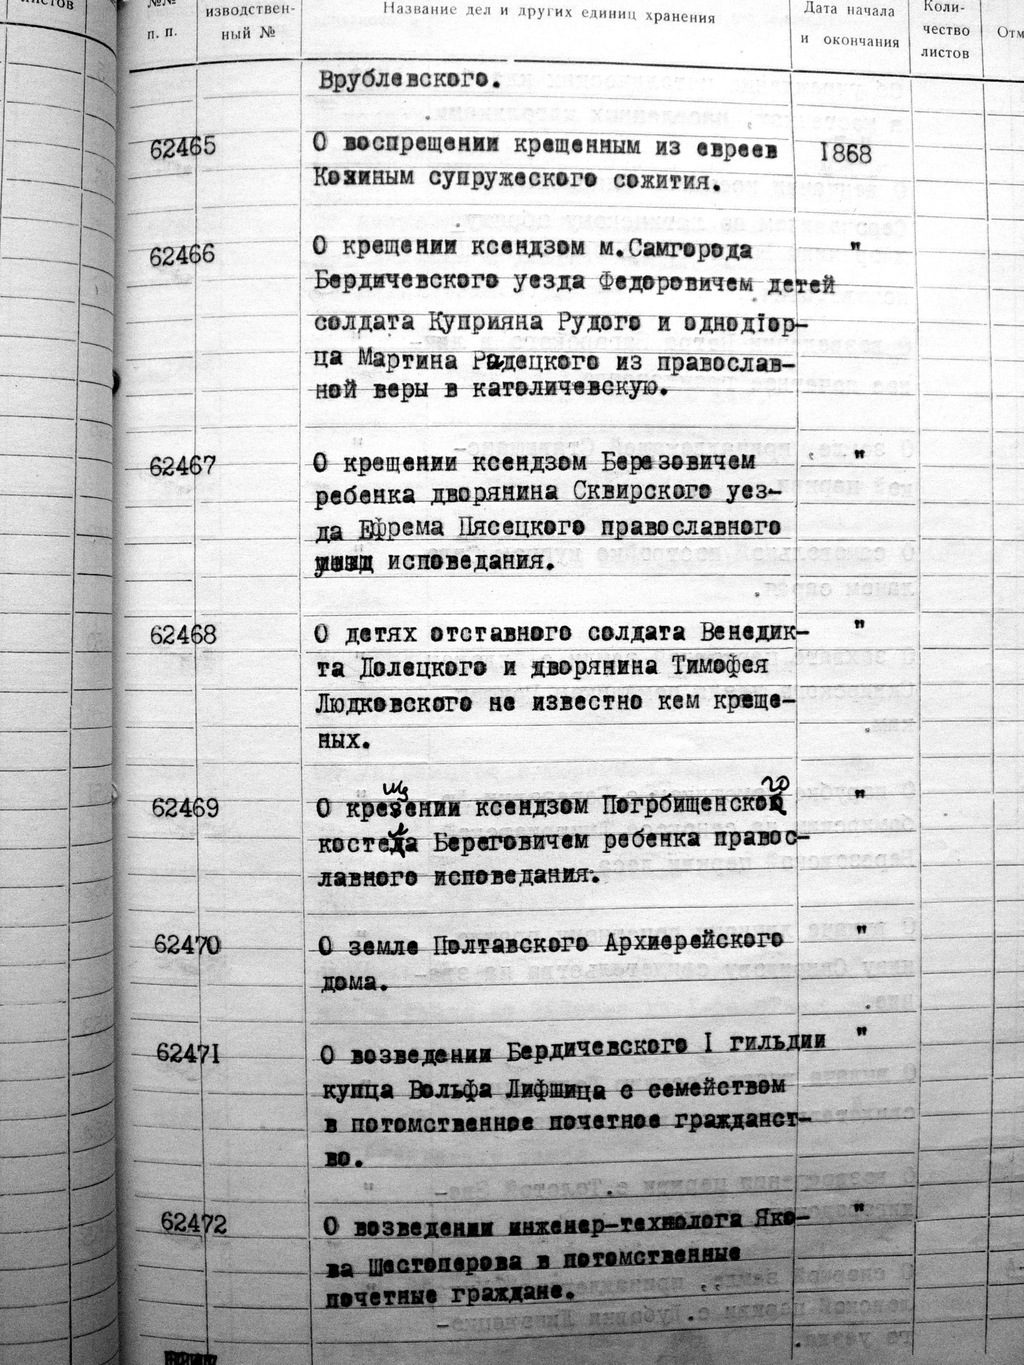 листов
№№ изводствен- Название дел и других единиц хранения Дата начала Коли-
п. п. ный № и окончания чество Отм
листов
Врублевского.
62465 О воспрещении крещенным из евреев 1868
Козиным супружеского сожития.
62466 О крещении ксендзом м.Самгорода "
Бердичевского уезда Федоровичем детей
солдата Куприяна Рудого и однодIор-
ца Мартина Радецкого из православ-
ной веры в католичевскую.
62467 О крещении ксендзом Березовичем "
ребенка дворянина Сквирского уез-
да Ефрема Пясецкого православного
исповедания.
62468 О детях отставного солдата Венедик- "
та Долецкого и дворянина Тимофея
Людковского не известно кем креще-
ных.
62469 О крещении ксендзом Погрбищенского "
костела Береговичем ребенка правос-
лавного исповедания.
62470 О земле Полтавского Архиерейского "
дома.
62471 О возведении Бердичевского I гильдии "
купца Вольфа Лифшица с семейством
в потомственное почетное гражданст-
во.
62472 О возведении инженер-технолога Яко- "
ва Шестоперова в потомственные
почетные граждане.